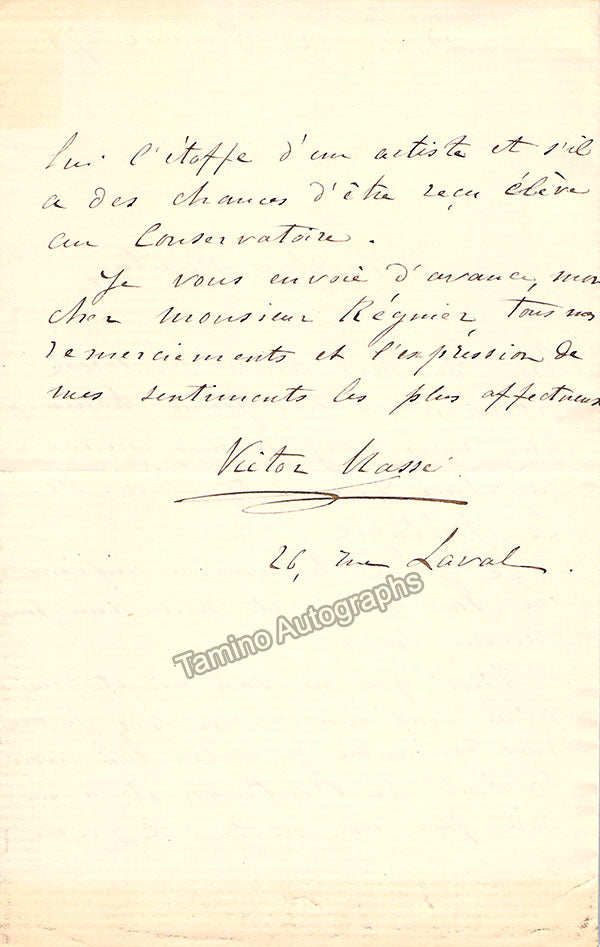 lui l'étoffe d'un artiste et s'il
a des chances d'être reçu élève
au Conservatoire.
Je vous envoie d'avance, mon
cher Monsieur Régnier, tous mes
remerciements et l'expression de
mes sentiments les plus affectueux
Victor Massé.
26, rue Laval.
Tamino Autographs